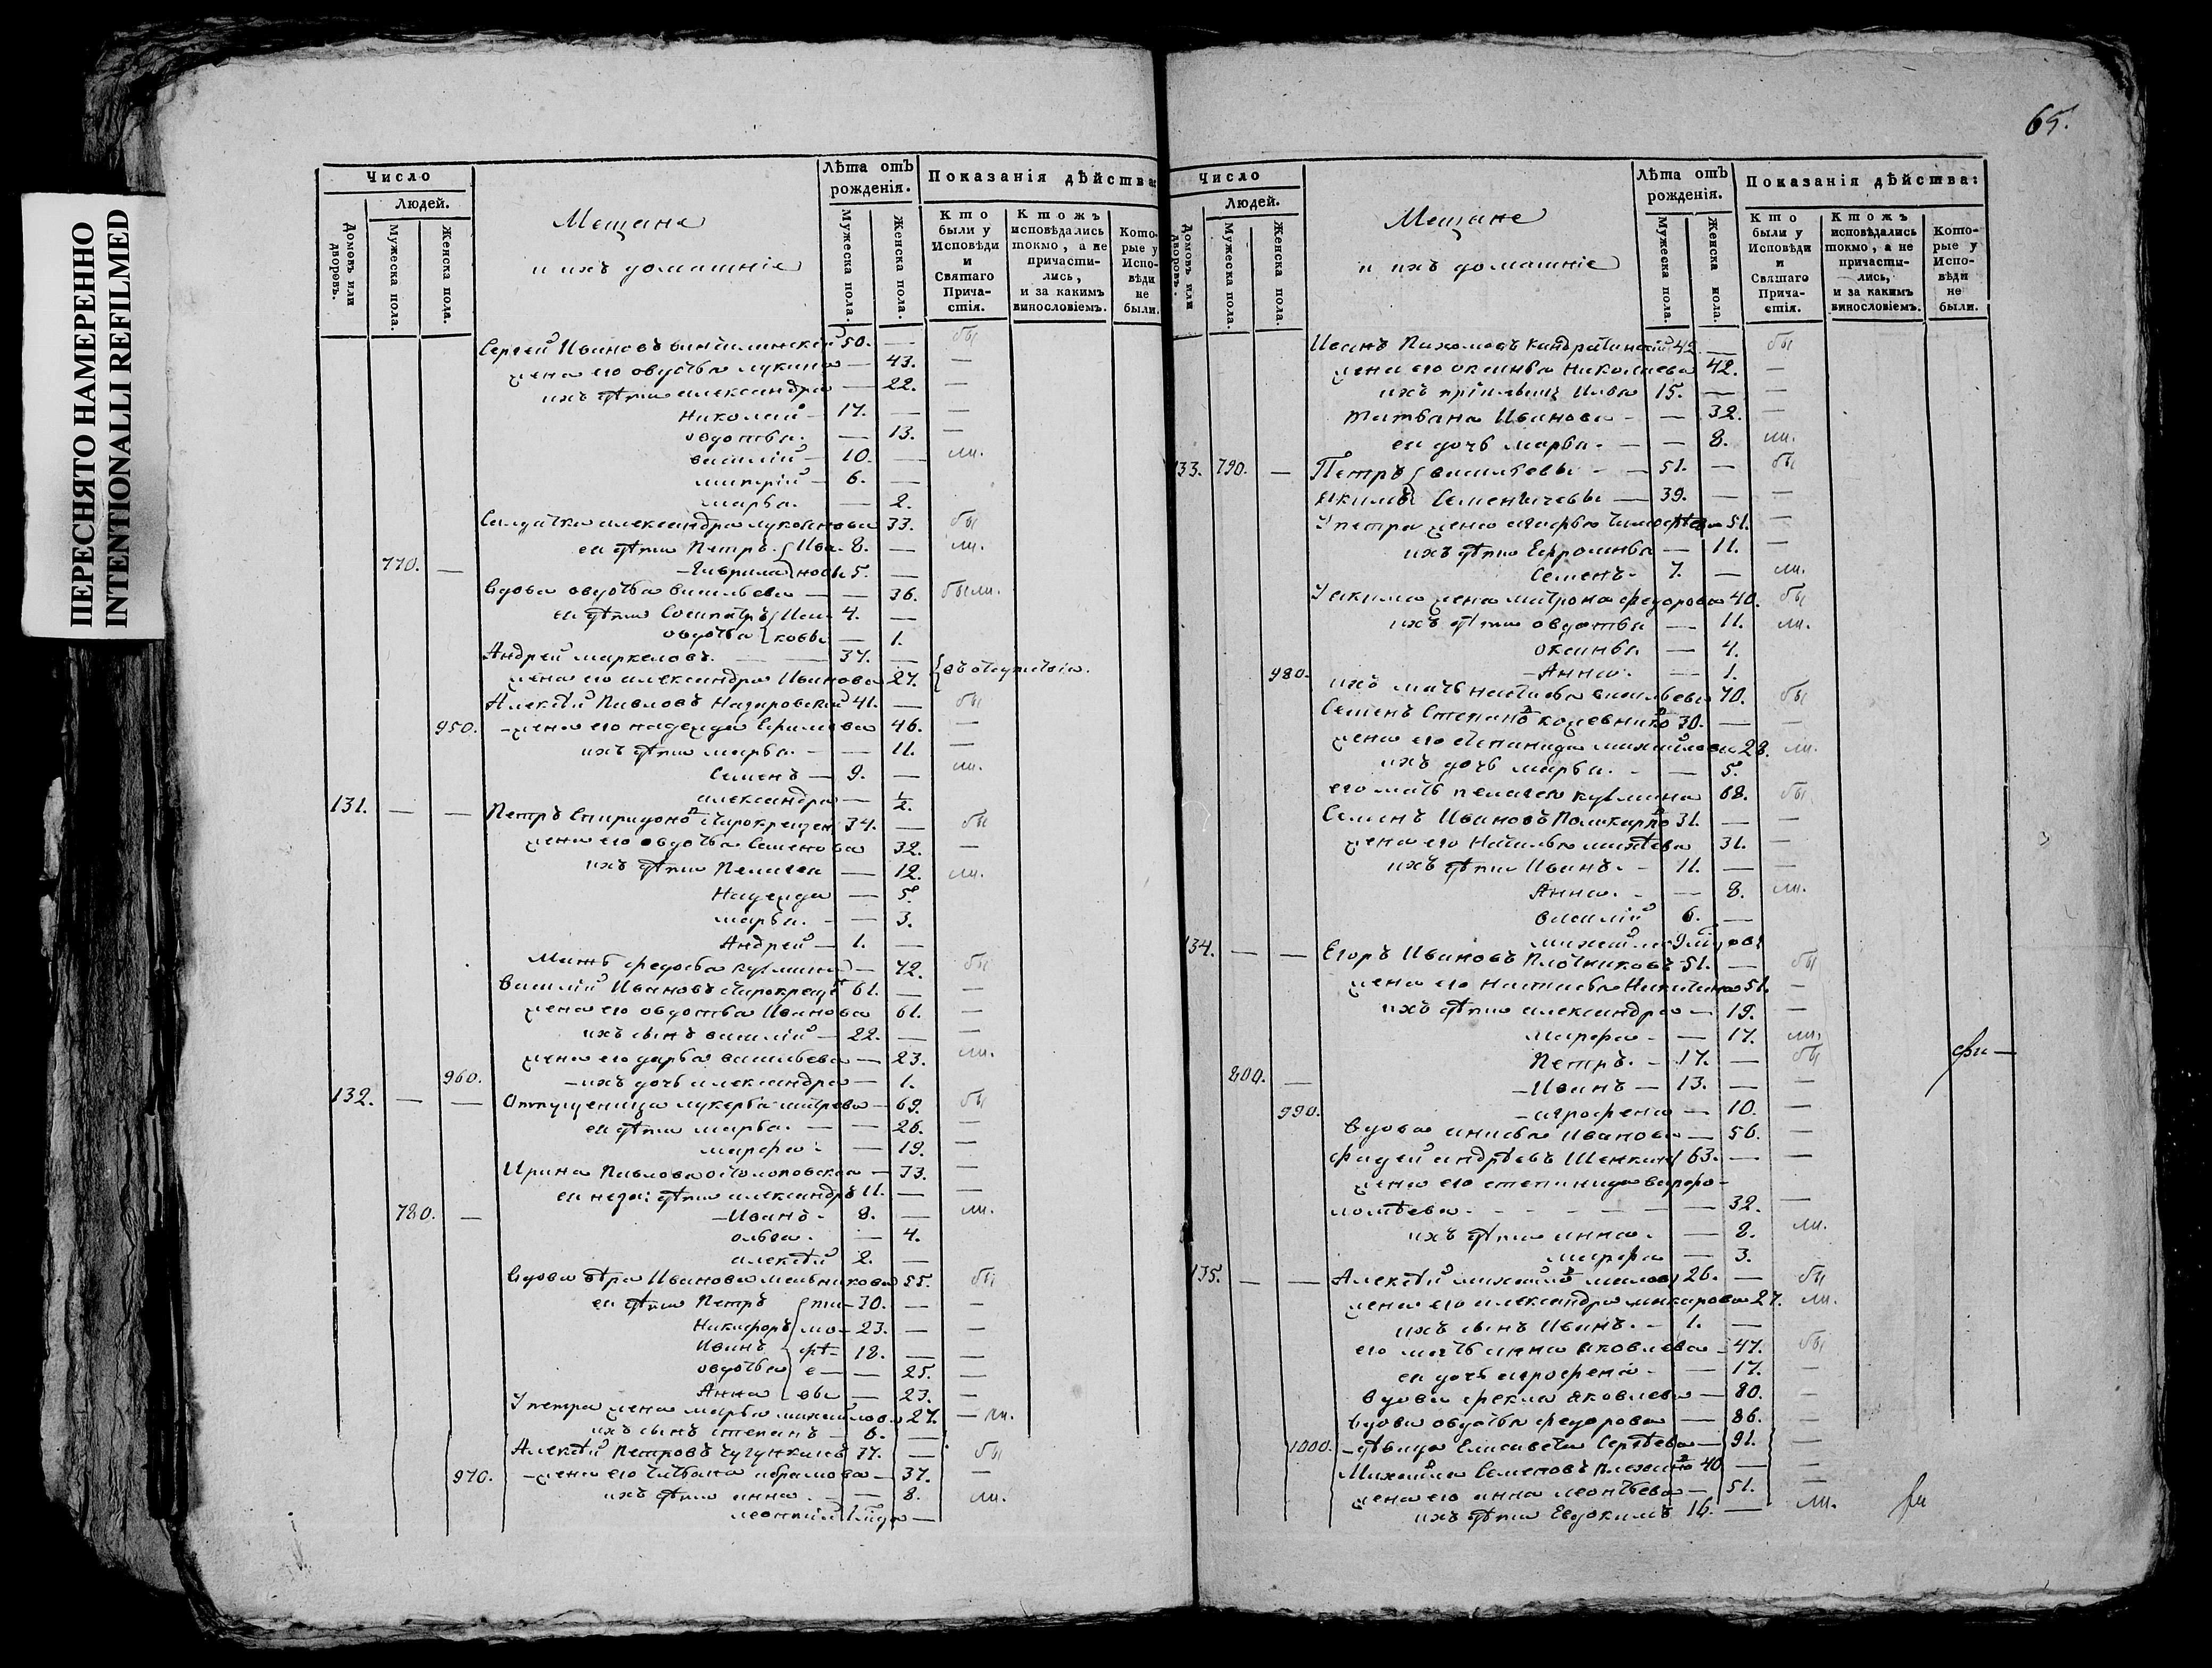 ПЕРЕСНЯТО НАМЕРЕННО
INTENTIONALLI REFILMED
65.
Число
Людей.
Домовъ или дворовъ.
Мужеска пола.
Женска пола.
Мещане
и ихъ домашніе
Лѣта отъ рожденія.
Мужеска пола.
Женска пола.
Показанія дѣйства:
Кто были у Исповѣди и Святаго Причастія.
Ктожъ исповѣдались токмо, а не причастились, и за какимъ винословіемъ.
Которые у Исповѣди не были.
Сергей Ивановъ 50. — бы
жена его овдотья лукина — 43. —
ихъ дѣти александра — 22. —
Николай — 17. — —
овдотья. — 13. —
василій — 10. — ли.
митрій — 6. —
марья. — 2.
Салдатка александра 33. бы
ея дѣти Петръ { Ива- 8. — ли.
770. — Гаврила { новы 5. —
Вдова овдотья васильева — — 36. были.
ея дѣти 4. —
овдотья { ковы — 1.
Андрей маркеловъ. — 37. —
жена его александра Иванова 27. } въ отсутствіи.
Алексѣй Павловъ Назаровской 41. — бы
950. — жена его надежда Ефимова 46. —
ихъ дѣти марья. — — 11. —
Семенъ — 9. — ли.
александра — ½
131. — — Петръ Спиридоно[в] 34. — бы
жена его овдотья Семенова 32. —
ихъ дѣти Пелагея — 12. ли.
Надежда — 5.
марья. — — 3.
Андрей — 1. —
Мать федосья кузмина — 72. бы
Василій Ивановъ 61. — —
жена его овдотья Иванова 61. —
ихъ сынъ василій — 22. — —
жена его дарья васильева — 23. ли.
960. — ихъ дочь александра — 1.
132. — — Отпущеница лукерья — 69. бы
ея дѣти марья. — — 26. —
марфа. — 19. —
Ирина Павлова — 33. —
ея незак: дѣти александръ 11. — —
780. — — Иванъ — 8. — ли.
ольга. — 4.
алексѣй 2. —
Вдова вѣра Иванова мельникова 55. бы
ея дѣти Петръ { ти- 30. — —
Никифоръ { мо- 23. — —
Иванъ { фѣ- 18. — —
овдотья { е — — 25. —
Анна { вы — 23. —
У петра жена марья михайлова 27. — ли.
ихъ сынъ степанъ — 6. —
Алексѣй Петровъ 37. — бы
970. — жена его татьяна абрамова — 37. —
ихъ дѣти анна. — 8. ли.
леонтій 1 года —
Число
Людей.
Домовъ или дворовъ.
Мужеска пола.
Женска пола.
Мещане
и ихъ домашніе
Лѣта отъ рожденія.
Мужеска пола.
Женска пола.
Показанія дѣйства:
Кто были у Исповѣди и Святаго Причастія.
Ктожъ исповѣдались токмо, а не причастились, и за какимъ винословіемъ.
Которые у Исповѣди не были.
Иванъ Пахомовъ 42 — бы
жена его оксинья Николаева 42. —
ихъ Илья 15. — —
татьяна Иванова — — 32. —
ея дочь марья. — — 8. ли.
133. 790. — Петръ { васильевы — 51. — бы
якимъ { Семенычевы — 39. — —
У петра жена 51. —
ихъ дѣти Ефросинья — 11. —
Семенъ. 7. — ли.
У якима жена матрона федорова 40. бы
ихъ дѣти овдотья — 11. ли.
оксинья — 4.
980. — Анна. — 1.
ихъ мать настасья васильева 70. бы
Семенъ Степановъ кожевнико[в] 30. — —
жена его степанида михайлова 28. ли.
ихъ дочь марья. — — 5.
его мать пелагея кузмина 68. бы
Семенъ Ивановъ Поликарпо[в] 31. — —
жена его Наталья 31. —
ихъ дѣти Иванъ. — 11. — —
Анна. — — 8. ли.
василій 6. —
134. — — Егоръ Ивановъ Плотниковъ 51. — бы
жена его Настасья Никитина 51. —
ихъ дѣти александра — 19. —
марфа — — 17. ли.
Петръ. — 17. — бы
800. — — Иванъ — 13. — —
990. — агрофена — 10. —
Вдова анисья Иванова — 56. —
Фадей андрѣевъ Шенкинъ 63. — —
жена его степанида варфо-
ломѣева — 32. —
ихъ дѣти анна. — 8. ли.
марфа — 3.
135. — — Алексѣй михайло[в] 26. — бы
жена его александра макарова 27. ли.
ихъ сынъ Иванъ. — 1. —
его мать анна яковлева — 47. бы
ея дочь агрофена — 17. —
Вдова фекла яковлева — 80. —
Вдова овдотья федорова — 86. —
1000. — дѣвица Елисавета Сергѣева — 91. —
Михайла Семеновъ 40 — —
жена его анна леонтьева — 51. —
ихъ дѣти Евдокимъ 16. — ли.